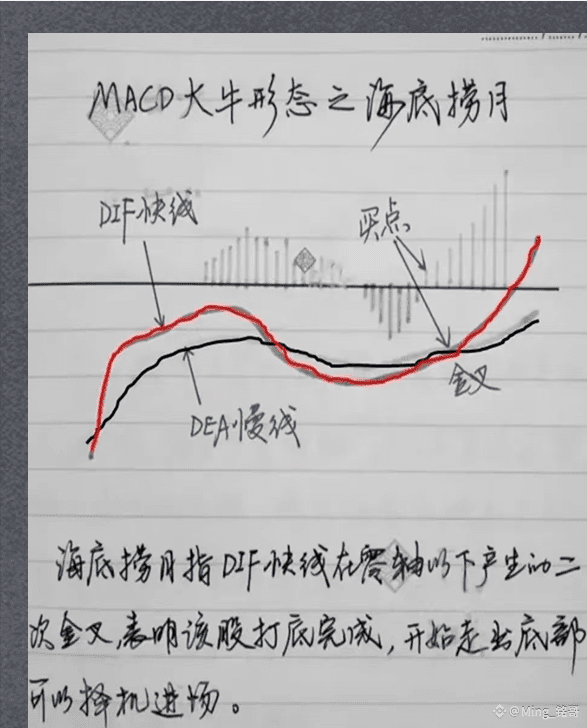 MACD大牛形态之海底捞月
DIF快线
买点
金叉
DEA慢线
海底捞月指DIF快线在零轴以下产生的二
次金叉,表明该股打底完成,开始走出底部
可以择机进场。
@Ming_铭哥